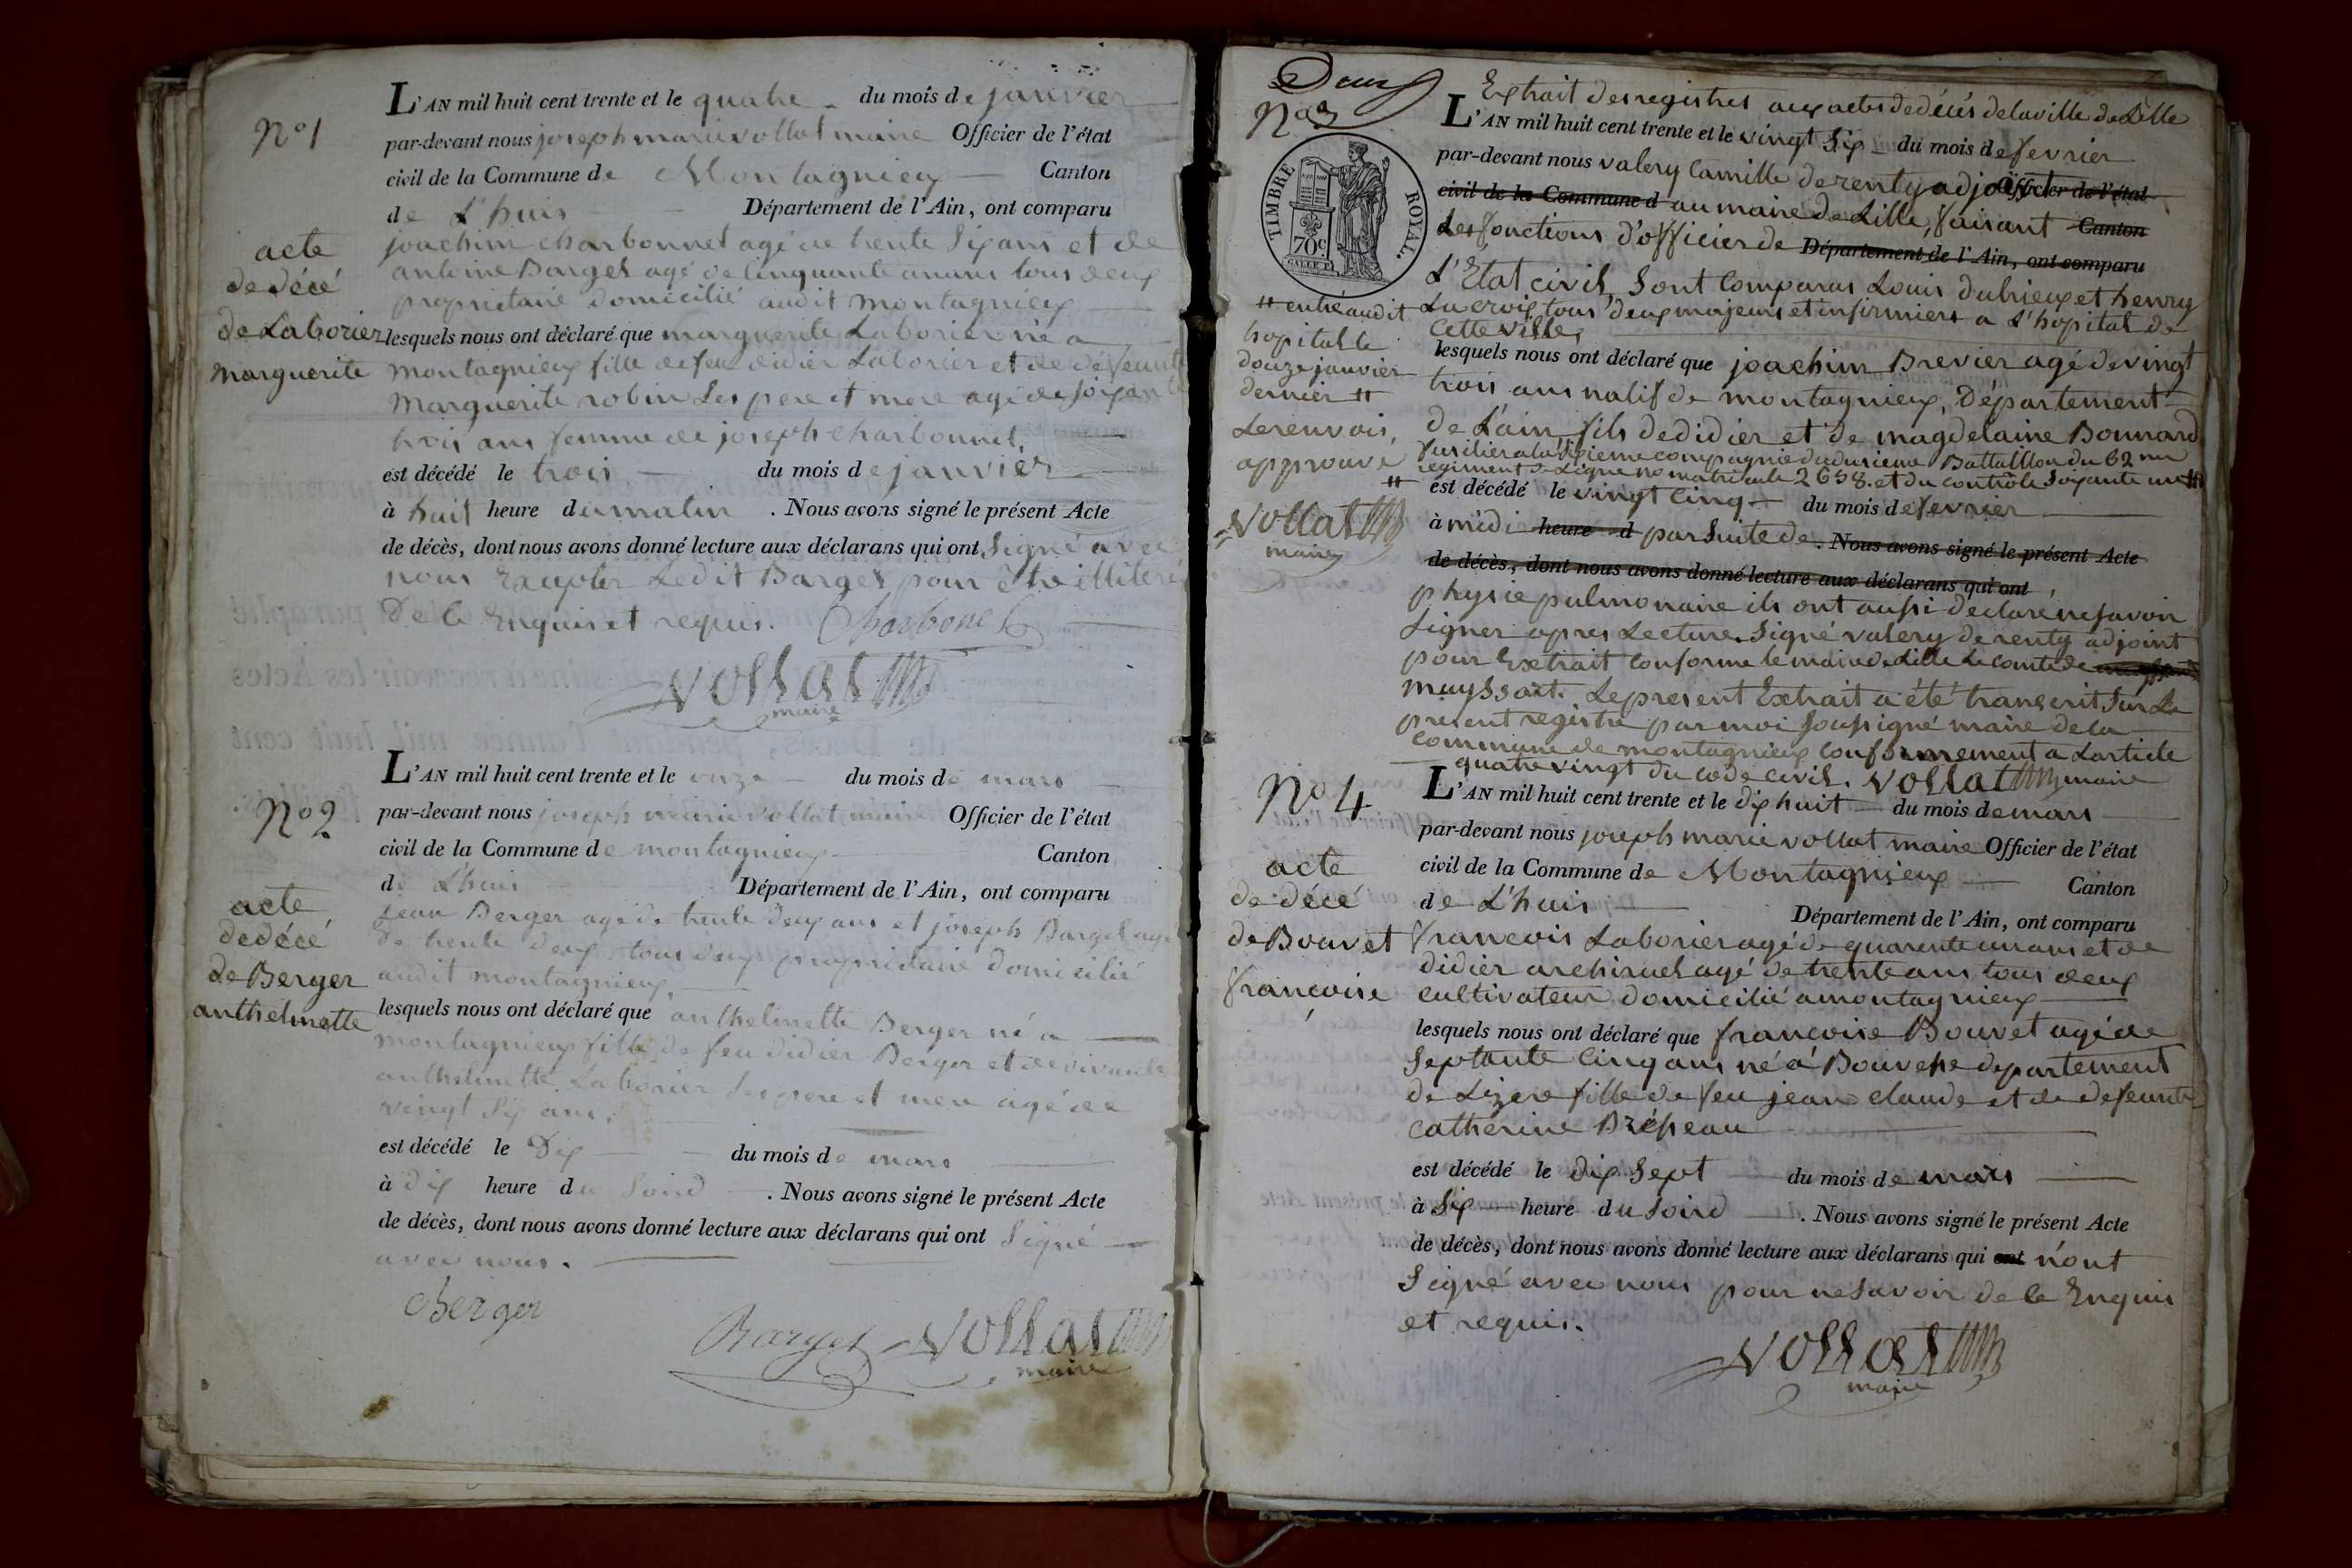 N° 1
L'AN mil huit cent trente et le quatre du mois de janvier
par-devant nous joseph marie vollat maire Officier de l'état
civil de la Commune de Montagnieux Canton
de L'huis Département de l'Ain, ont comparu
acte
de décé
de Laborier
marguerite
joachim charbonnet agé de trente six ans et de
antoine Barget agé de Cinquante un ans tous deux
proprietaire domicilié audit montagnieux
lesquels nous ont déclaré que marguerite Laborier né a
montagnieux fille de feu didier Laborier et de defeunte
marguerite robin Les pere et mere agé de soixante
trois ans femme de joseph charbonnet
est décédé le trois du mois de janvier
à huit heure du matin . Nous avons signé le présent Acte
de décès, dont nous avons donné lecture aux déclarans qui ont Signé avec
nous Exapter Ledit Barget pour être illiteré
De ce Enquis et requis. Charbonet
vollat
maire
N° 2
L'AN mil huit cent trente et le onze du mois de mars
par-devant nous joseph marie vollat maire Officier de l'état
civil de la Commune de montagnieux Canton
de L'huis Département de l'Ain, ont comparu
acte
de décé
de Berger
anthelmette
jean Berger agé de trente deux ans et joseph Barget agé
de trente deux tous deux proprietaire domicilié
audit montagnieux
lesquels nous ont déclaré que anthelmette Berger né a
montagnieux fille de feu didier Berger et de vivante
anthelmette Laborier Les pere et mere agé de
vingt six ans.
est décédé le Dix du mois de mars
à dix heure du Soird . Nous avons signé le présent Acte
de décès, dont nous avons donné lecture aux déclarans qui ont Signé
avec nous.
Berger
Barget vollat
maire
Deux
N° 3
TIMBRE ROYAL.
70c
Extrait des registres aux actes de décés de la ville de Lille
L'AN mil huit cent trente et le vingt Six du mois de fevrier
par-devant nous valery Camille de renty adjoint Officier de l'état
civil de la Commune d au maire de Lille, faisant Canton
Les fonctions d'officier de Département de l'Ain, ont comparu
L'Etat civil, Sont Comparus Louis duhieux et henry
Lacroix, tous deux majeurs et infirmiers a L'hopital de
Cette ville,
lesquels nous ont déclaré que joachim Brevier agé de vingt
trois ans natif de montagnieux, Département
de L'ain, fils de didier et de magdelaine Bonnard
fusilier a la Sixieme compagnie du dusieme Battalllon du 62 me
regiment de Ligne no matricule 2658. et du controle Soixante un #
# entré audit
hopital le
douze janvier
dernier #
Le renvois,
approuvé
#
vollat
maire
est décédé le vingt Cinq du mois de fevrier
à midi heure d par Suite de . Nous avons signé le présent Acte
de décès, dont nous avons donné lecture aux déclarans qui ont
physie pulmonaire ils ont aussi declaré ne savoir
Signer apres Lecture. Signé valery de renty adjoint
pour Extrait Conforme le maire de Lille Le comte de
muyssart. Le present Extrait a été transcrit Sur Le
present registre par moi Soussigné maire de la
commune de montagnieux Conformement a L'article
quatre vingt du code Civil. vollat maire
N° 4
L'AN mil huit cent trente et le dix huit du mois de mars
par-devant nous joseph marie vollat maire Officier de l'état
civil de la Commune de Montagnieux Canton
de L'huis Département de l'Ain, ont comparu
acte
de décé
de Bouvet
françoise
francois Laborier agé de quarente un ans et de
didier archiruel agé de trente ans tous deux
cultivateur domicilié a montagnieux
lesquels nous ont déclaré que francoise Bouvet agé de
Septante Cinq ans né a Bouvesse departement
de Lizere fille de feu jean claude et de defeunte
catherine
est décédé le dix Sept du mois de mars
à Six heure du Soird . Nous avons signé le présent Acte
de décès, dont nous avons donné lecture aux déclarans qui ont n'ont
Signé avec nous pour ne Savoir de ce Enquis
et requis.
vollat
maire